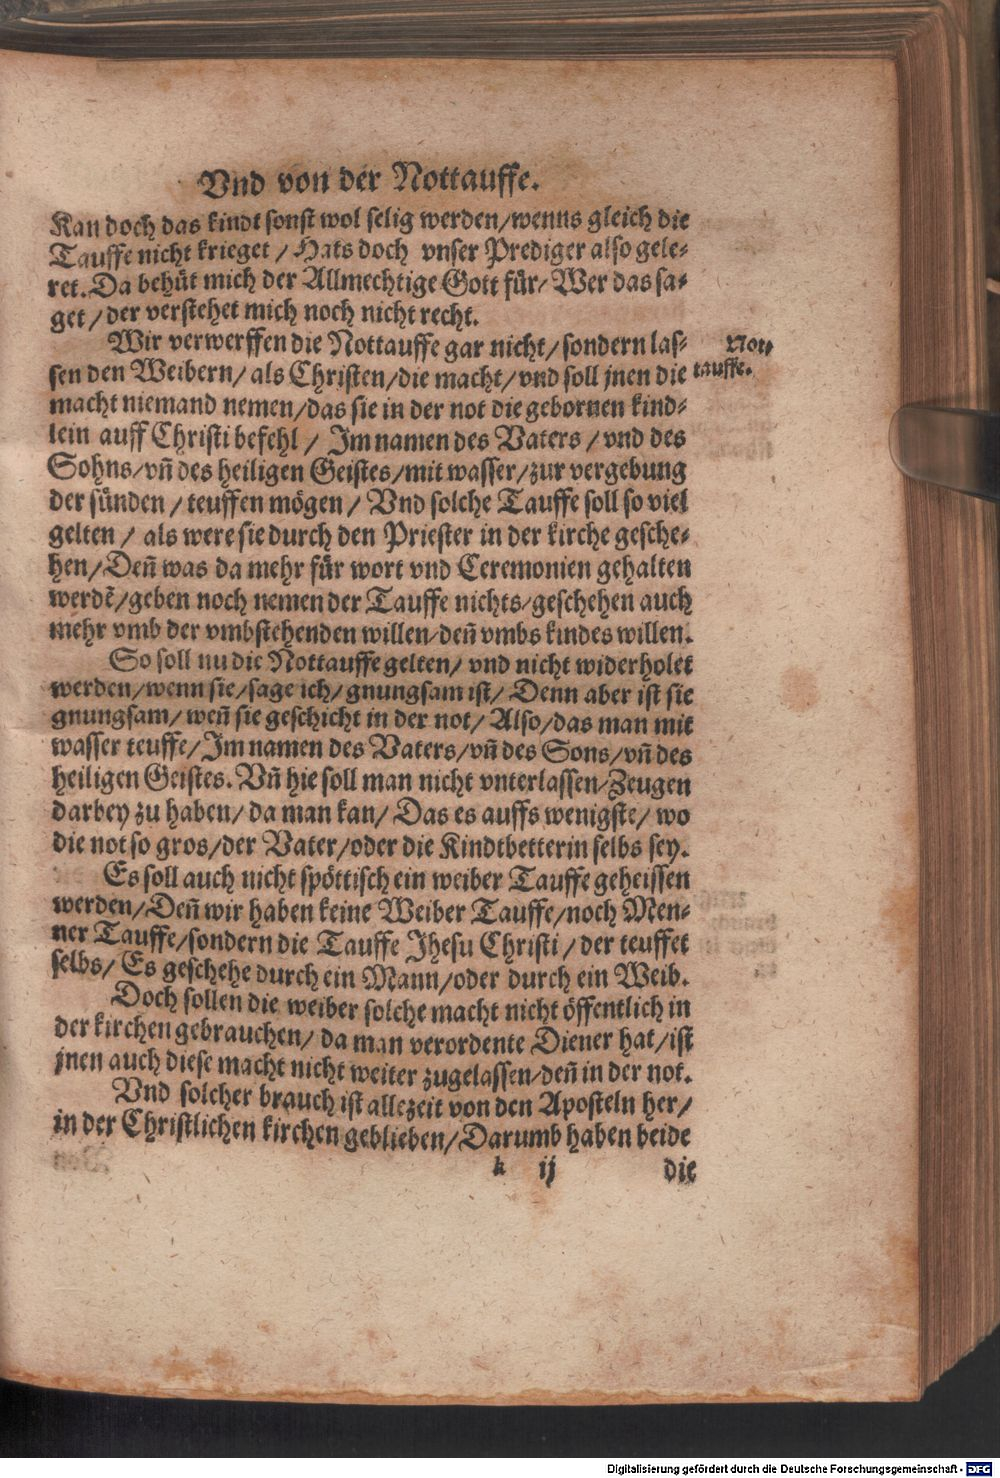 Vnd von der Nottauffe.
Kan doch das kindt sonst wol selig werden/wenns gleich die
Tauffe nicht krieget / Hats doch vnser Prediger also gele-
ret. Da behüt mich der Allmechtige Gott für/ Wer das sa-
get / der verstehet mich noch nicht recht.
Wir verwerffen die Nottauffe gar nicht/ sondern las-
sen den Weibern/ als Christen/die macht/ vnd soll jnen die
macht niemand nemen/das sie in der not die gebornen kind-
lein auff Christi befehl / Im namen des Vaters / vnd des
Sohns/vn̄ des heiligen Geistes/mit wasser/zur vergebung
der sünden / teuffen mögen / Vnd solche Tauffe soll so viel
gelten / als were sie durch den Priester in der kirche gesche-
hen/Den̄ was da mehr für wort vnd Ceremonien gehalten
werdē/geben noch nemen der Tauffe nichts/geschehen auch
mehr vmb der vmbstehenden willen/den̄ vmbs kindes willen.
So soll nu die Nottauffe gelten/ vnd nicht widerholet
werden/wenn sie/sage ich/ gnungsam ist/ Denn aber ist sie
gnungsam/ wen̄ sie geschicht in der not/ Also/das man mit
wasser teuffe/Im namen des Vaters/vn̄ des Sons/vn̄ des
heiligen Geistes. Vn̄ hie soll man nicht vnterlassen/Zeugen
darbey zu haben/ da man kan/ Das es auffs wenigste/ wo
die not so gros/der Vater/oder die Kindtbetterin selbs sey.
Es soll auch nicht spöttisch ein weiber Tauffe geheissen
werden/Den̄ wir haben keine Weiber Tauffe/noch Men-
ner Tauffe/sondern die Tauffe Jhesu Christi / der teuffet
selbs/ Es geschehe durch ein Mann/oder durch ein Weib.
Doch sollen die weiber solche macht nicht öffentlich in
der kirchen gebrauchen/ da man verordente Diener hat/ist
jnen auch diese macht nicht weiter zugelassen/den̄ in der not.
Vnd solcher brauch ist allezeit von den Aposteln her/
in der Christlichen kirchen geblieben/Darumb haben beide
k ij die
Not-
tauffe.
Digitalisierung gefördert durch die Deutsche Forschungsgemeinschaft - DFG